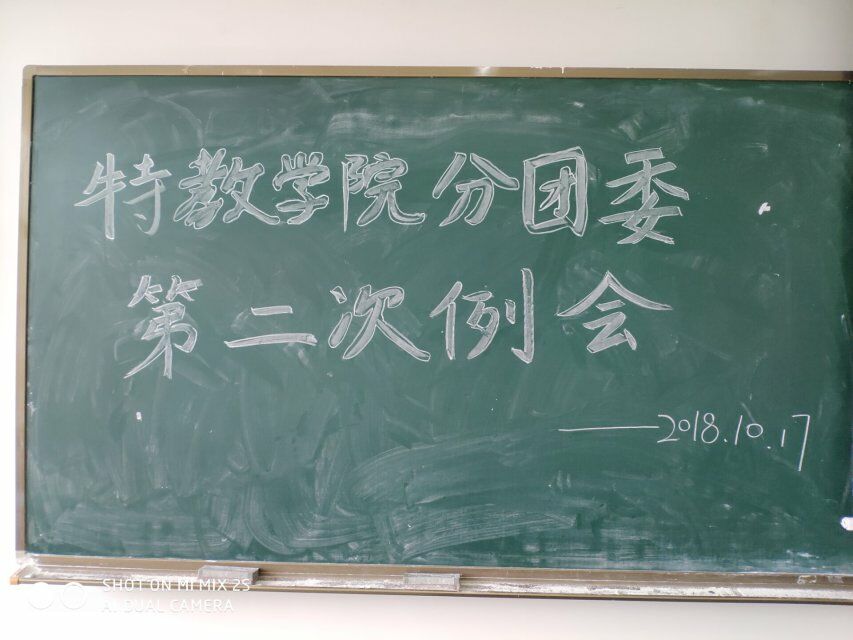 特教学院分团委
第二次例会
——2018.10.17
SHOT ON MI MIX 2S
AI DUAL CAMERA